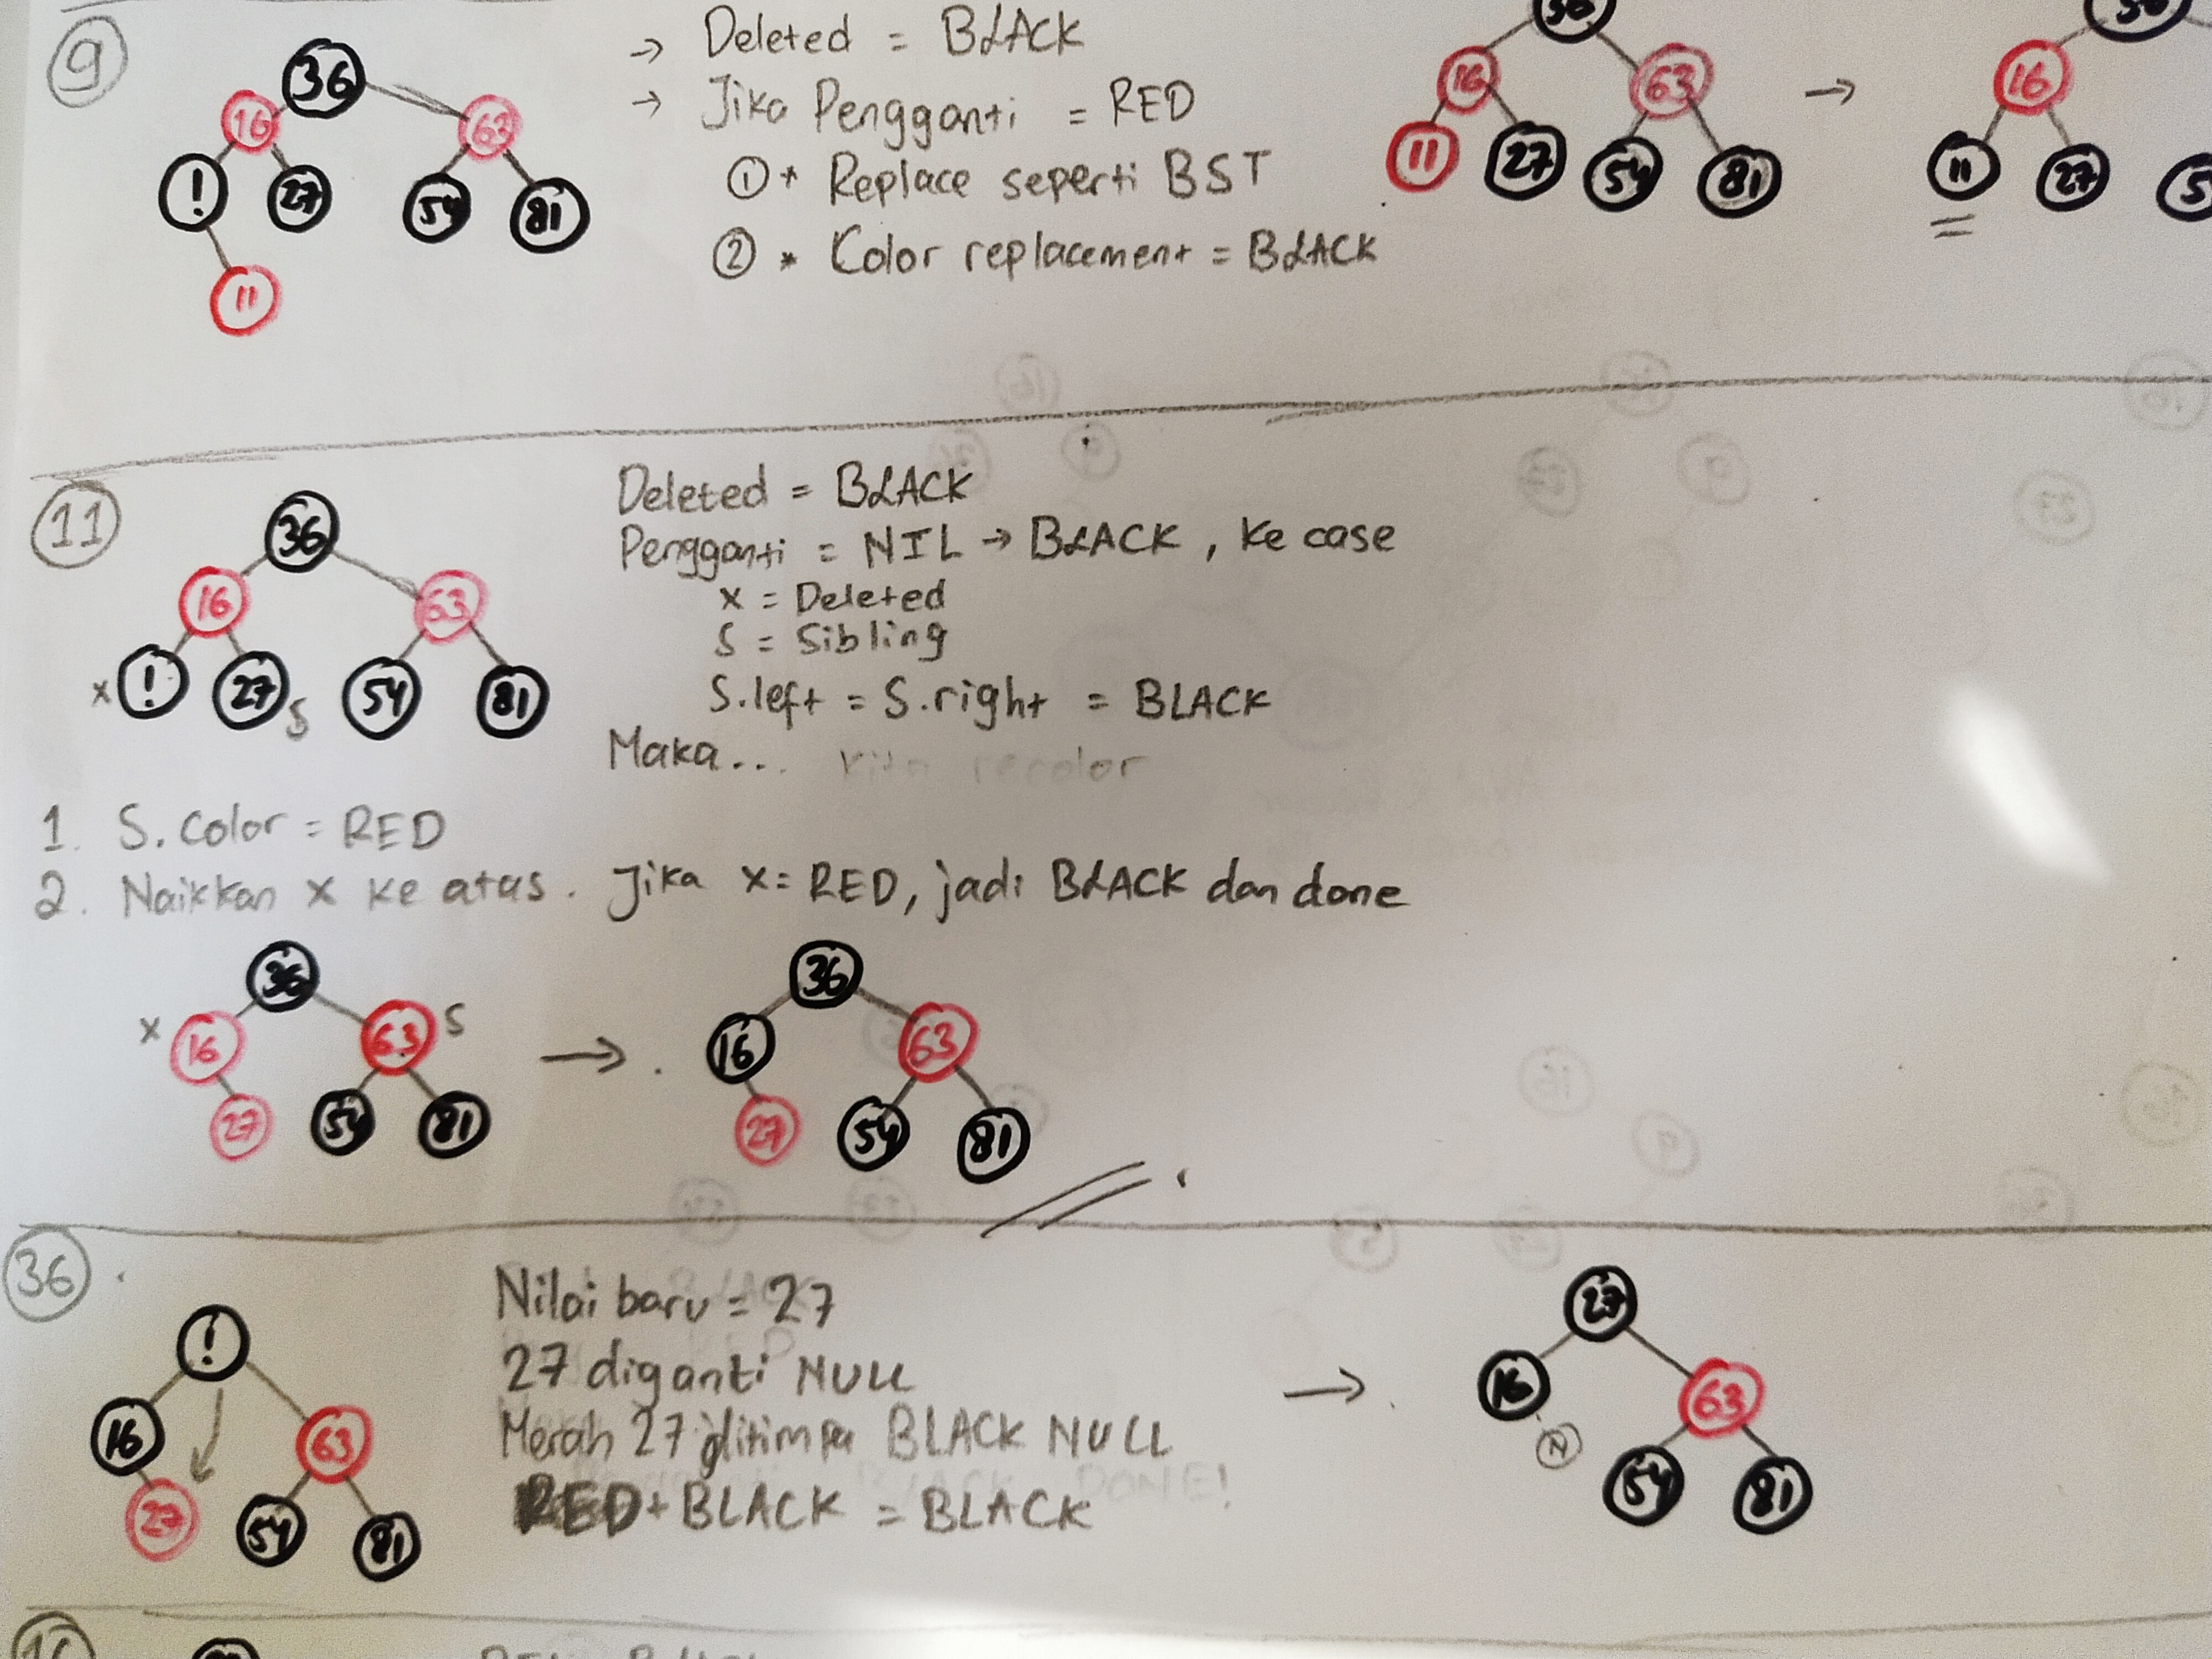 9
!
16
36
11
27
54
63
81
→ Deleted = BLACK
→ Jika Pengganti = RED
① + Replace seperti BST
② * Color replacement = BLACK
11
16
27
54
63
81
→
11
16
27
11
x
!
16
36
27
S
54
63
81
Deleted = BLACK
Pengganti = NIL → BLACK, ke case
x = Deleted
S = Sibling
S.left = S.right = BLACK
Maka...
1. S.Color = RED
2. Naikkan x ke atas. Jika x = RED, jadi BLACK dan done
x
16
36
27
54
63
S
81
→
16
36
27
54
63
81
36
16
!
27
54
63
81
Nilai baru = 27
27 diganti NULL
Merah 27 ditimpa BLACK NULL
RED + BLACK = BLACK
→
16
27
N
54
63
81